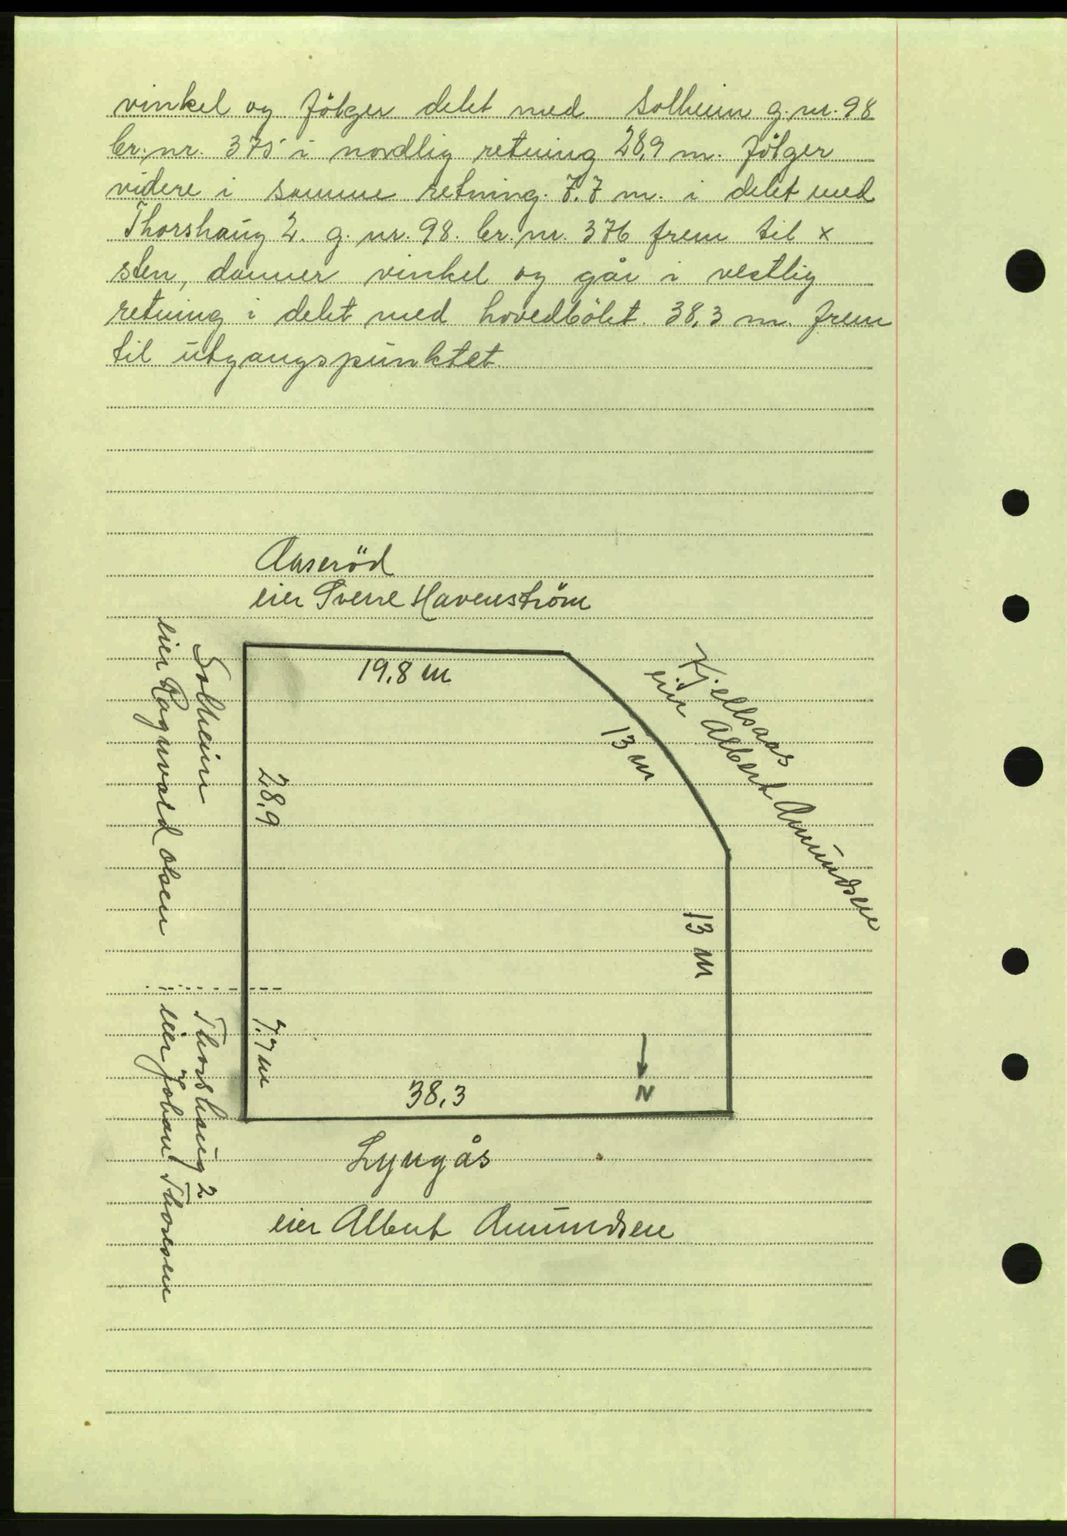 vinkel og fölger delet med Solheim g.nr. 98
br.nr. 375 i nordlig retning 28,9 m. fölger
videre i samme retning. 7.7 m. i delet med
Thorshaug 2. g. nr. 98. br. nr. 376 frem til x
sten, danner vinkel og går i vestlig
retning i delet med hovedbölet. 38,3 m. frem
til utgangspunktet.
Aaseröd
eier Sverre Havenström
19,8 m
Kjellsaas
eier Albert Amundsen
13 m
Solheim
eier Ragnvald Olsen
28,9
13 m
Thorshaug 2
eier Johan Thoresen
7.7 m
N
38,3
Lyngås
eier Albert Amundsen